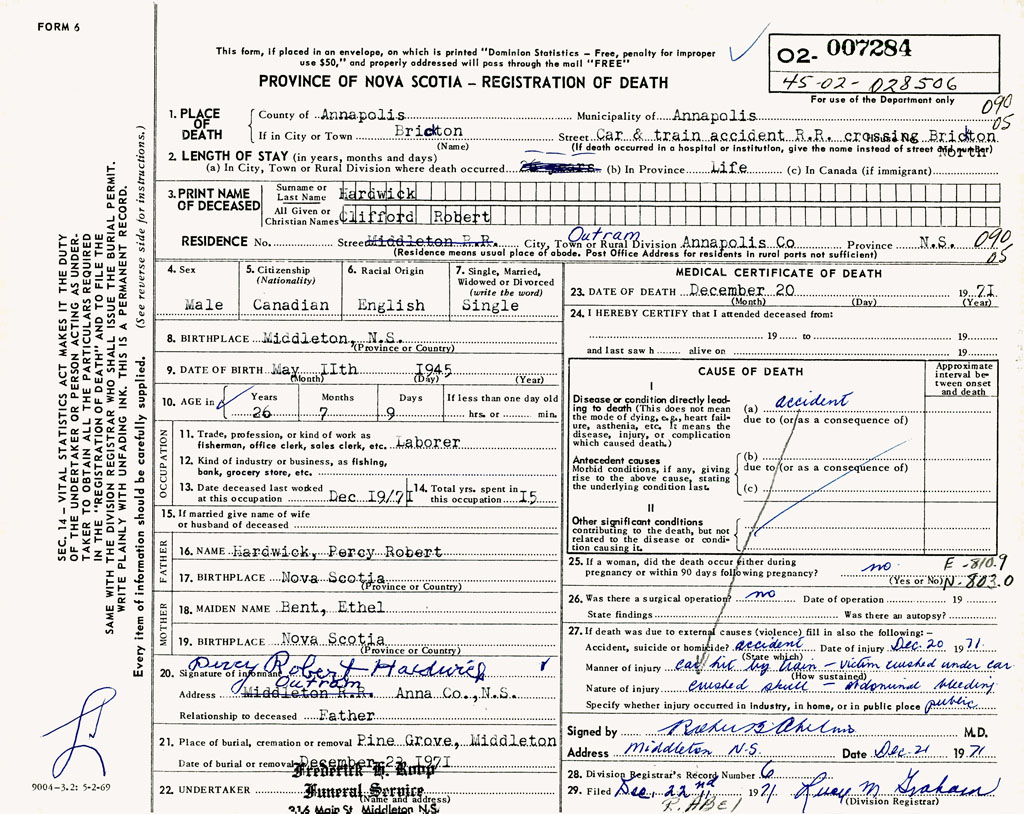 FORM 6
This form, if placed in an envelope, on which is printed "Dominion Statistics – Free, penalty for improper
use $50," and properly addressed will pass through the mail "FREE"
PROVINCE OF NOVA SCOTIA – REGISTRATION OF DEATH
02- 007284
45-02-028506
For use of the Department only
090
05
1. PLACE OF DEATH
County of Annapolis Municipality of Annapolis
If in City or Town Brickton Street Car & train accident R.R. crossing Brickton
North
(Name) (If death occurred in a hospital or institution, give the name instead of street and number)
2. LENGTH OF STAY (in years, months and days)
(a) In City, Town or Rural Division where death occurred 26 years (b) In Province Life (c) In Canada (if immigrant)
3. PRINT NAME OF DECEASED
Surname or Last Name Hardwick
All Given or Christian Names Clifford Robert
Outram
RESIDENCE No. Street Middleton R.R. City, Town or Rural Division Annapolis Co Province N.S. 090
05
(Residence means usual place of abode. Post Office Address for residents in rural parts not sufficient)
4. Sex
Male
5. Citizenship (Nationality)
Canadian
6. Racial Origin
English
7. Single, Married, Widowed or Divorced (write the word)
Single
8. BIRTHPLACE Middleton, N.S.
(Province or Country)
9. DATE OF BIRTH May 11th 1945
(Month) (Day) (Year)
10. AGE in Years Months Days If less than one day old
26 7 9 hrs. or min.
OCCUPATION
11. Trade, profession, or kind of work as
fisherman, office clerk, sales clerk, etc. Laborer
12. Kind of industry or business, as fishing,
bank, grocery store, etc.
13. Date deceased last worked
at this occupation Dec 19/71
14. Total yrs. spent in
this occupation 15
15. If married give name of wife
or husband of deceased
FATHER
16. NAME Hardwick, Percy Robert
17. BIRTHPLACE Nova Scotia
(Province or Country)
MOTHER
18. MAIDEN NAME Bent, Ethel
19. BIRTHPLACE Nova Scotia
(Province or Country)
20. Signature of informant Percy Robert Hardwick
Outram
Address Middleton R.R. Anna Co., N.S.
Relationship to deceased Father
21. Place of burial, cremation or removal Pine Grove, Middleton
Date of burial or removal December 23 1971
22. UNDERTAKER Frederick H. Roop
Funeral Service
(Name and address)
336 Main St. Middleton N.S.
MEDICAL CERTIFICATE OF DEATH
23. DATE OF DEATH December 20 1971
(Month) (Day) (Year)
24. I HEREBY CERTIFY that I attended deceased from:
19 to 19
and last saw h alive on 19
CAUSE OF DEATH
Approximate interval between onset and death
I
Disease or condition directly leading to death (This does not mean the mode of dying, e.g., heart failure, asthenia, etc. It means the disease, injury, or complication which caused death.)
(a) accident
due to (or as a consequence of)
Antecedent causes
Morbid conditions, if any, giving rise to the above cause, stating the underlying condition last.
(b)
due to (or as a consequence of)
(c)
II
Other significant conditions
contributing to the death, but not related to the disease or condition causing it.
25. If a woman, did the death occur either during
pregnancy or within 90 days following pregnancy? no
(Yes or No)
E-810.9
N-803.0
26. Was there a surgical operation? no Date of operation 19
State findings Was there an autopsy?
27. If death was due to external causes (violence) fill in also the following:–
Accident, suicide or homicide? accident Date of injury Dec 20 1971
(State which)
Manner of injury car hit by train – victim crushed under car
(How sustained)
Nature of injury crushed skull – abdominal bleeding
Specify whether injury occurred in industry, in home, or in public place public
Signed by M.D.
Address Middleton N.S. Date Dec. 21 1971
28. Division Registrar's Record Number 6
29. Filed Dec. 22nd 1971 Lucy M Graham
11
(Division Registrar)
SEC. 14 – VITAL STATISTICS ACT MAKES IT THE DUTY
OF THE UNDERTAKER OR PERSON ACTING AS UNDER-
TAKER TO OBTAIN ALL THE PARTICULARS REQUIRED
IN THE "REGISTRATION OF DEATH" AND TO FILE THE
SAME WITH THE DIVISION REGISTRAR WHO SHALL ISSUE THE BURIAL PERMIT.
WRITE PLAINLY WITH UNFADING INK. THIS IS A PERMANENT RECORD.
Every item of information should be carefully supplied. (See reverse side for instructions.)
9004-3.2: 5-2-69